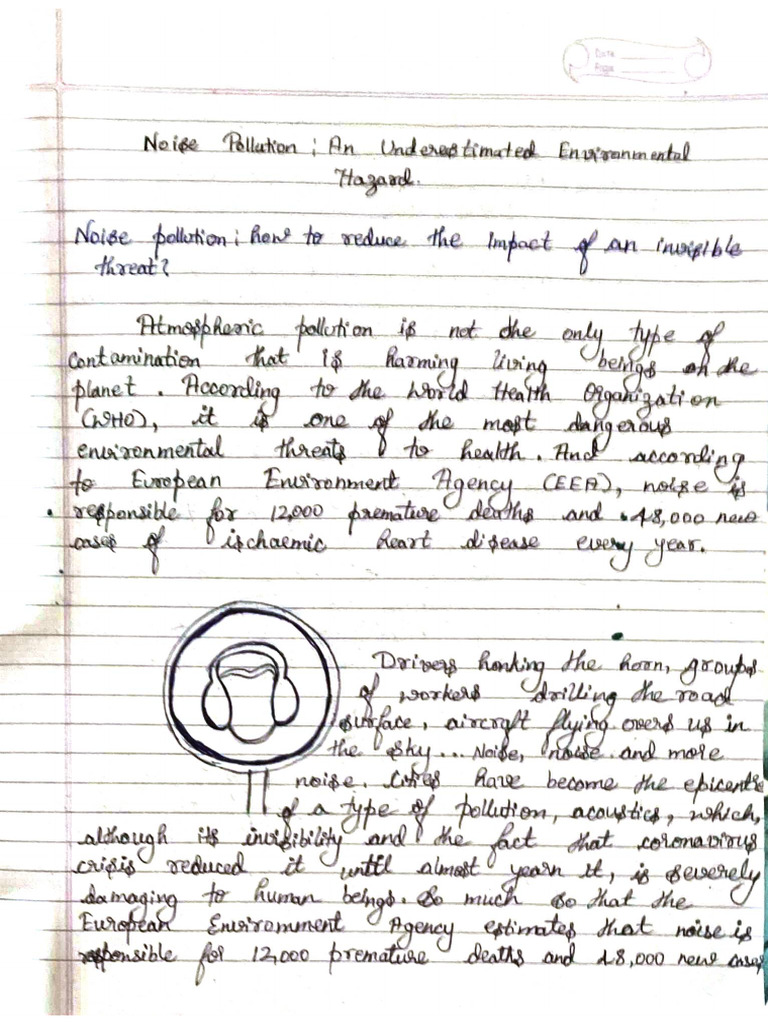 Date
Page
Noise Pollution ; An Underestimated Environmental
Hazard.
Noise pollution ; how to reduce the impact of an invisible
threat?
Atmospheric pollution is not the only type of
contamination that is harming living beings on the
planet . According to the World Health Organization
(WHO), it is one of the most dangerous
environmental threats to health. And according
to European Environment Agency (EEA), noise is
responsible for 12,000 premature deaths and 48,000 new
cases of ischaemic heart disease every year.
Drivers honking the horn, groups
of workers drilling the road
surface, aircraft flying overs us in
the sky... Noise, noise and more
noise. Cities have become the epicentre
of a type of pollution, acoustics, which,
although its invisibility and the fact that coronavirus
crisis reduced it until almost yearn it, is severely
damaging to human beings. So much so that the
European Environment Agency estimates that noise is
responsible for 12,000 premature deaths and 48,000 new cases